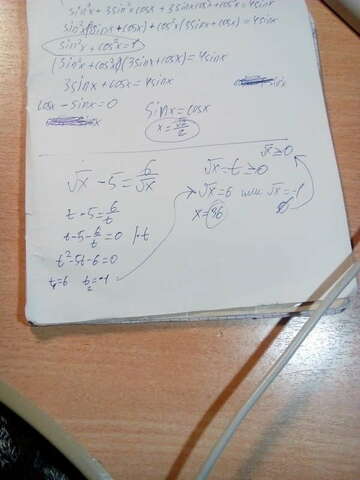 sin³x + 3sin²x cosx + 3sinxcos²x + cos³x = 4sinx
sin²x(3sinx + cosx) + cos²x(3sinx + cosx) = 4sinx
sin²x + cos²x = 1
(sin²x + cos²x)(3sinx + cosx) = 4sinx
3sinx + cosx = 4sinx
cosx - sinx = 0
sinx = cosx
x = π/4
√x - 5 = 6/√x
t - 5 = 6/t
t - 5 - 6/t = 0 |·t
t² - 5t - 6 = 0
t₁ = 6 t₂ = -1
√x ≥ 0
√x = t ≥ 0
√x = 6 или √x = -1
x = 36 ∅